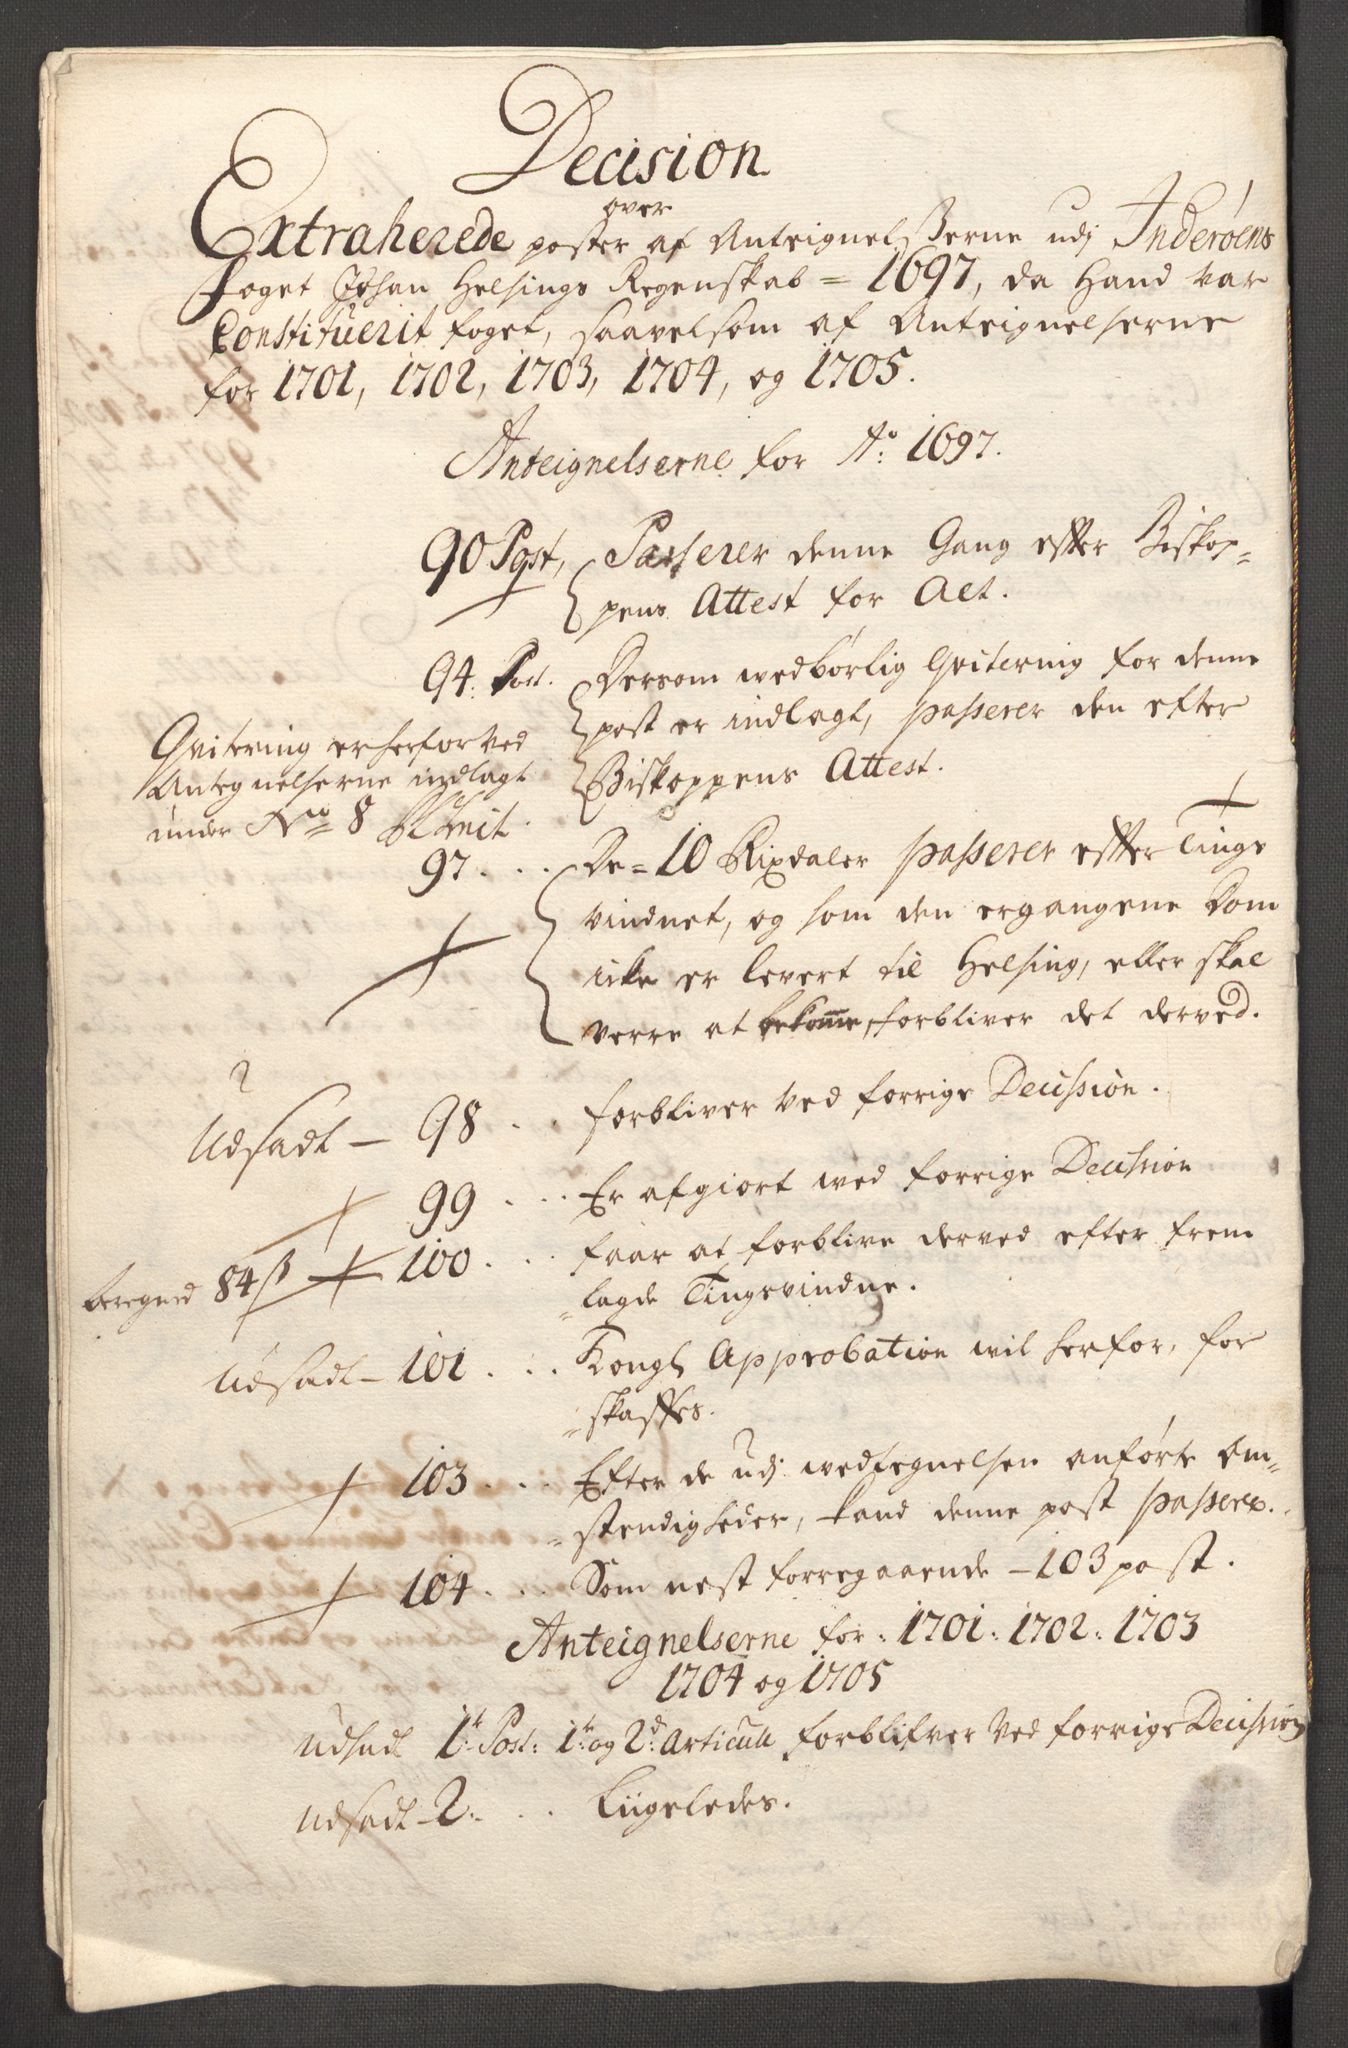 Decision
over
Extraherede poster af Anteignelserne udj Inderøens
foget Johan Helsings Regenskab = 1697, da Hand var
Constituerit foget, saavelsom af Anteignelserne
for 1701, 1702, 1703, 1704, og 1705.
Anteignelserne for Ao: 1697.
90 Post, Passerer denne Gang efter Biskop-
pens Attest for Alt.
94. Post. Dersom wedbørlig Qvitering for denne
post er indlagt, passerer den efter
Biskoppens Attest.
Qvitering er herfor ved
Antegnelserne indlagt
under No 8
97. . . De = 10 Rixdaler passerer efter Tings
vindnet, og som den ergangene Dom
icke er levert til Helsing, eller skal
verre at bekomme, forbliver det derved.
Udsadt - 98 . . forbliver ved forrige Decission.
99 . . . Er afgiort wed forrige Decission
beregned 84 ß 100. . . faar at forblive derved efter frem
lagde Tingsvindne.
Udsadt - 101 . . . Kongl Approbation wil herfor, for
skaffes.
103 . . . Efter de udj wedtegnelsen anførte Om-
stendigheder, kand denne post passere.
104 . . . Som nest forregaaende - 103 post.
Anteignelserne for: 1701: 1702: 1703
1704 og 1705
udsadt 1t Post: 1t og 2d: Articul forblifver ved forrige Decission
udsadt - 2: . . . Liigeledes.